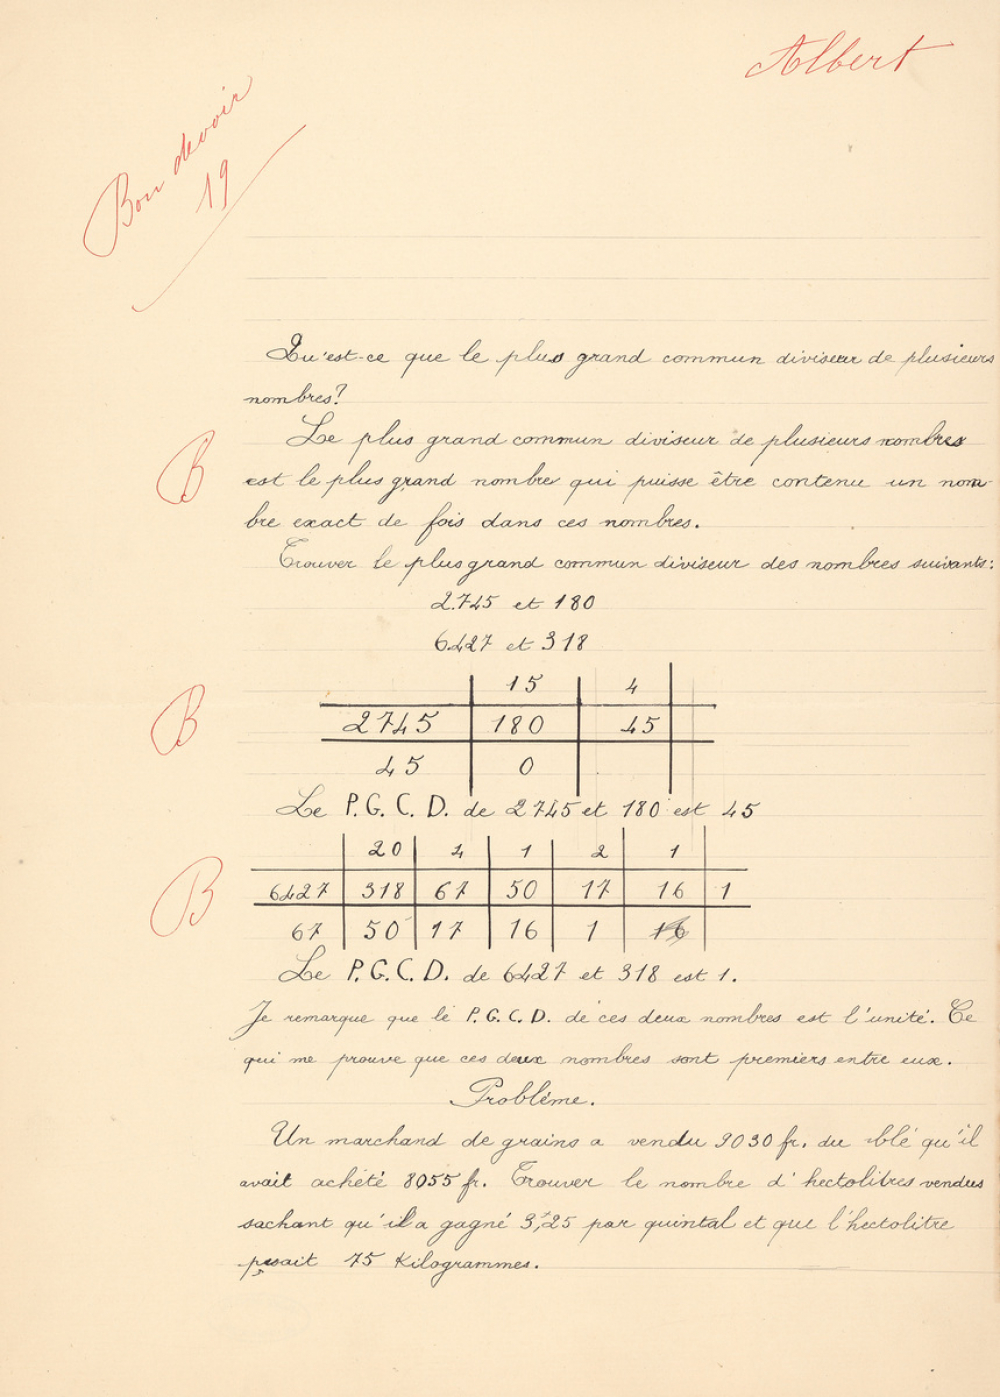 Albert
Bon devoir
19
Qu'est-ce que le plus grand commun diviseur de plusieurs
nombres?
B
Le plus grand commun diviseur de plusieurs nombres
est le plus grand nombre qui puisse être contenu un nom-
bre exact de fois dans ces nombres.
Trouver le plus grand commun diviseur des nombres suivants:
2745 et 180
6427 et 318
B
15 4
2745 180 45
45 0
Le P.G.C.D. de 2745 et 180 est 45
B
20 4 1 2 1
6427 318 67 50 17 16 1
67 50 17 16 1 16
Le P.G.C.D. de 6427 et 318 est 1.
Je remarque que le P.G.C.D. de ces deux nombres est l'unité. Ce
qui me prouve que ces deux nombres sont premiers entre eux.
Problème.
Un marchand de grains a vendu 9030 fr. du blé qu'il
avait acheté 8055 fr. Trouver le nombre d'hectolitres vendus
sachant qu'il a gagné 3f,25 par quintal et que l'hectolitre
pesait 75 Kilogrammes.